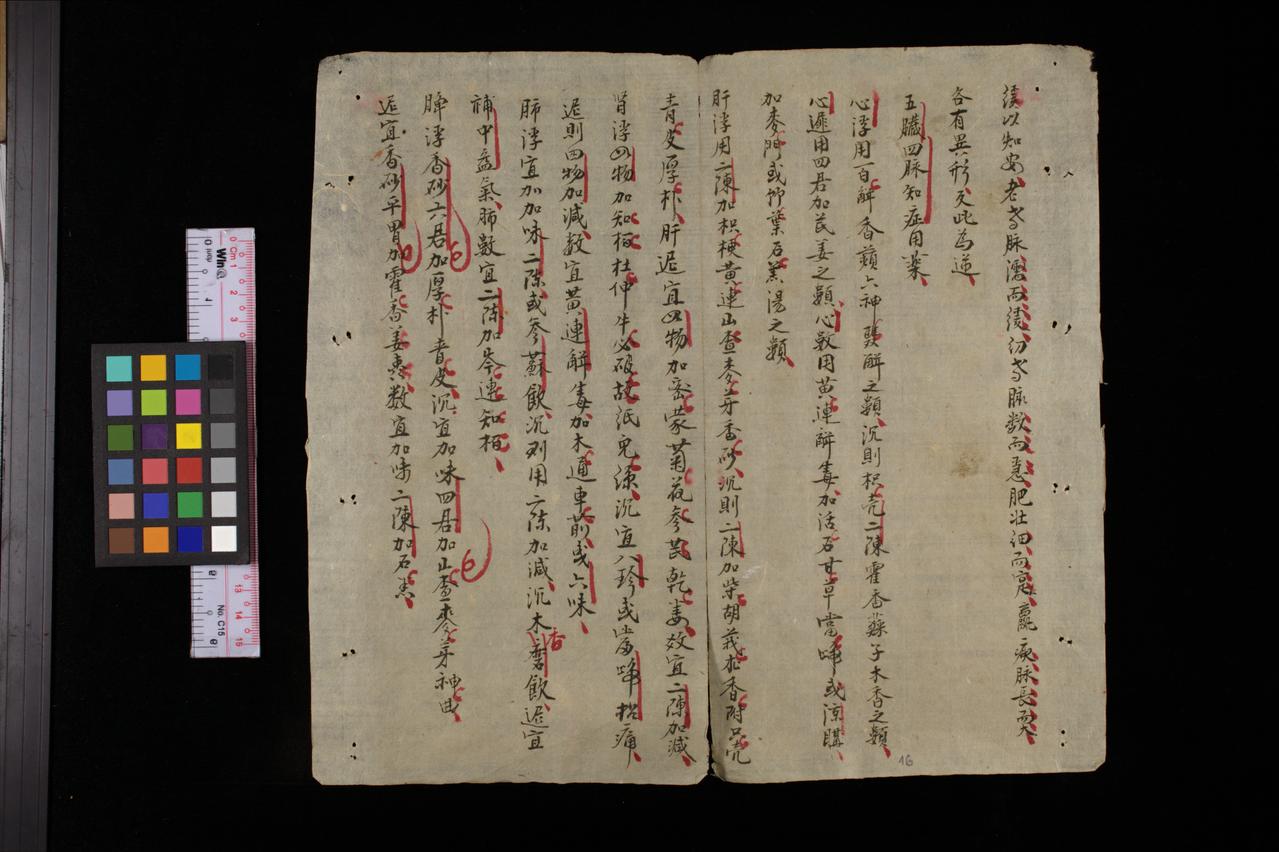 緩以知安老者脉濡而緩幼者脉数而急肥壮細而寔羸瘦脉長要
各有異形反此為逆
五臟四脉知症用藥
心浮用百解香蘓六神雙解之類沉則枳壳二陳霍香蘓子木香之類
心遲用四君加芪姜之類心数用黄連解毒加活石甘草當歸或涼膈
加麥門或抑葉石羔湯之類
肝浮用二陳加枳梗黄連山查麥芽香砂沉則二陳加柴胡莪朮香附只壳
青皮厚朴肝遲宜四物加密蒙菊花參芪乾姜效宜二陳加減
腎浮四物加知栢杜仲牛必破故紙兔絲沉宜八珍或當歸拈痛
遲則四物加減数宜黄連解毒加木通車前或六味
肺浮宜加加味二陳或參蘇飲沉列用二陳加減沉木香磨飲遲宜
補中益氣肺数宜二陳加芩連知栢
脾浮香砂六君加厚朴青皮沉宜加味四君加山查麥芽神曲
遲宜香砂平胃加霍香姜棗数宜加味二陳加石羔
16